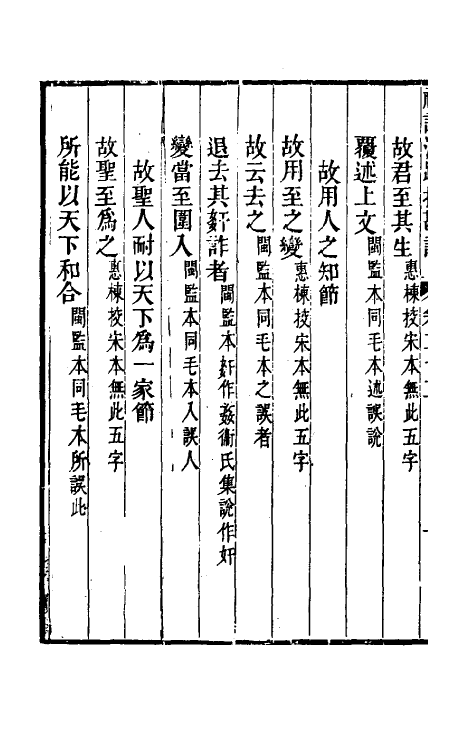 故君至其生惠棟挍宋本無此五字
覆述上文閩監本同毛本述誤說
故用人之知節
故用至之變惠棟挍宋本無此五字
故云去之閩監本同毛本之誤者
退去其姧詐者閩監本姧作姦衞氏集說作奸
變當至圍入閩監本同毛本入誤人
故聖人耐以天下爲一家節
故聖至爲之惠棟挍宋本無此五字
所能以天下和合閩監本同毛本所誤此